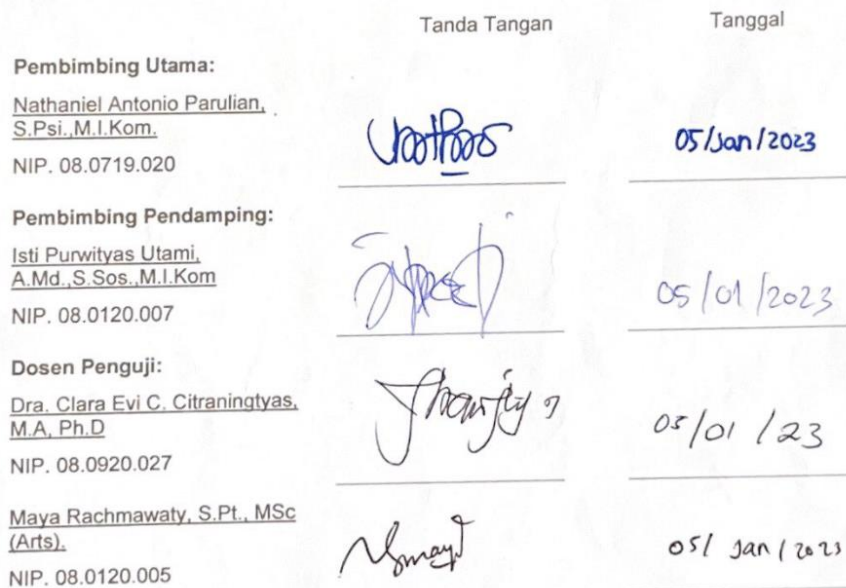 Tanda Tangan Tanggal
Pembimbing Utama:
Nathaniel Antonio Parulian,
S.Psi.,M.I.Kom.
NIP. 08.0719.020
05/Jan/2023
Pembimbing Pendamping:
Isti Purwityas Utami,
A.Md.,S.Sos.,M.I.Kom
NIP. 08.0120.007
05/01/2023
Dosen Penguji:
Dra. Clara Evi C. Citraningtyas,
M.A, Ph.D
NIP. 08.0920.027
05/01/23
Maya Rachmawaty, S.Pt., MSc
(Arts).
NIP. 08.0120.005
05/Jan/2023